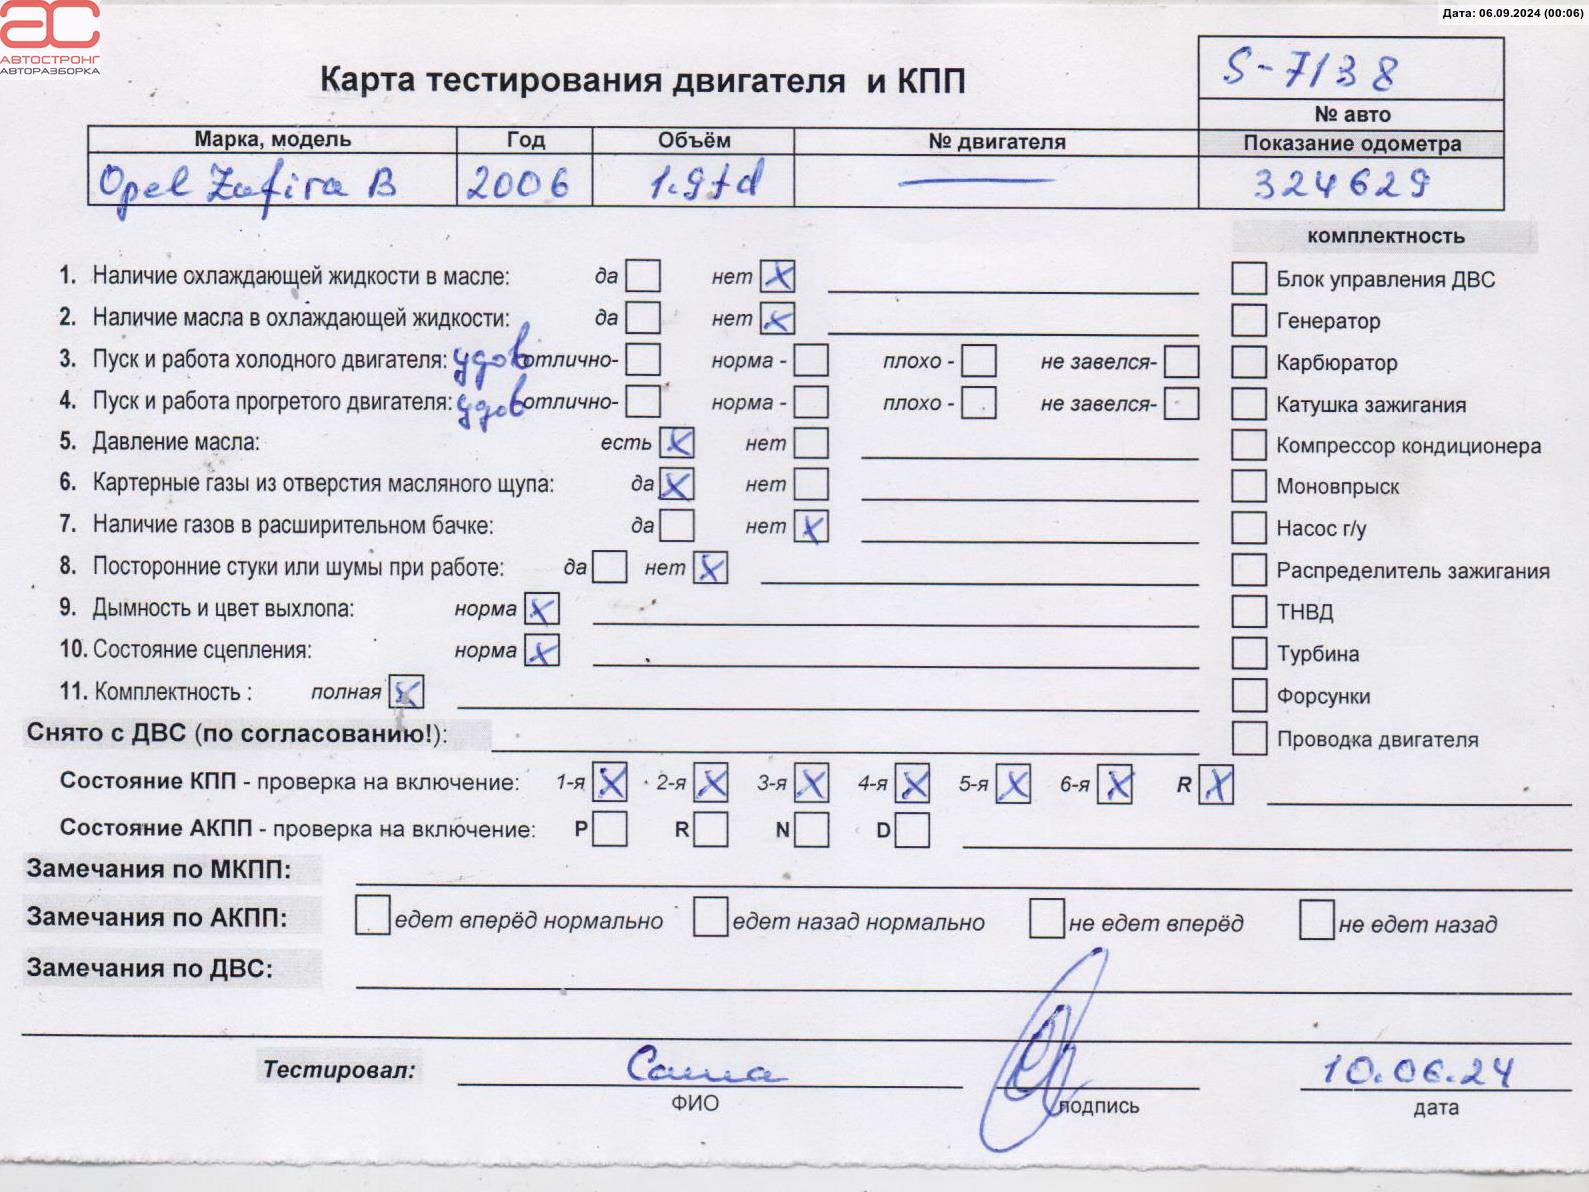 Дата: 06.09.2024 (00:06)
АС
АВТОСТРОНГ
АВТОРАЗБОРКА
Карта тестирования двигателя и КПП
S-7138
№ авто
Марка, модель Год Объём № двигателя Показание одометра
Opel Zafira B 2006 1.9td — 324629
комплектность
1. Наличие охлаждающей жидкости в масле: да нет X Блок управления ДВС
2. Наличие масла в охлаждающей жидкости: да нет X Генератор
3. Пуск и работа холодного двигателя: удов отлично- норма - плохо - не завелся- Карбюратор
4. Пуск и работа прогретого двигателя: удов отлично- норма - плохо - не завелся- Катушка зажигания
5. Давление масла: есть X нет Компрессор кондиционера
6. Картерные газы из отверстия масляного щупа: да X нет Моновпрыск
7. Наличие газов в расширительном бачке: да нет X Насос г/у
8. Посторонние стуки или шумы при работе: да нет X Распределитель зажигания
9. Дымность и цвет выхлопа: норма X ТНВД
10. Состояние сцепления: норма X Турбина
11. Комплектность : полная X Форсунки
Снято с ДВС (по согласованию!): Проводка двигателя
Состояние КПП - проверка на включение: 1-я X 2-я X 3-я X 4-я X 5-я X 6-я X R X
Состояние АКПП - проверка на включение: P R N D
Замечания по МКПП:
Замечания по АКПП: едет вперёд нормально едет назад нормально не едет вперёд не едет назад
Замечания по ДВС:
Тестировал: Саша 10.06.24
ФИО подпись дата